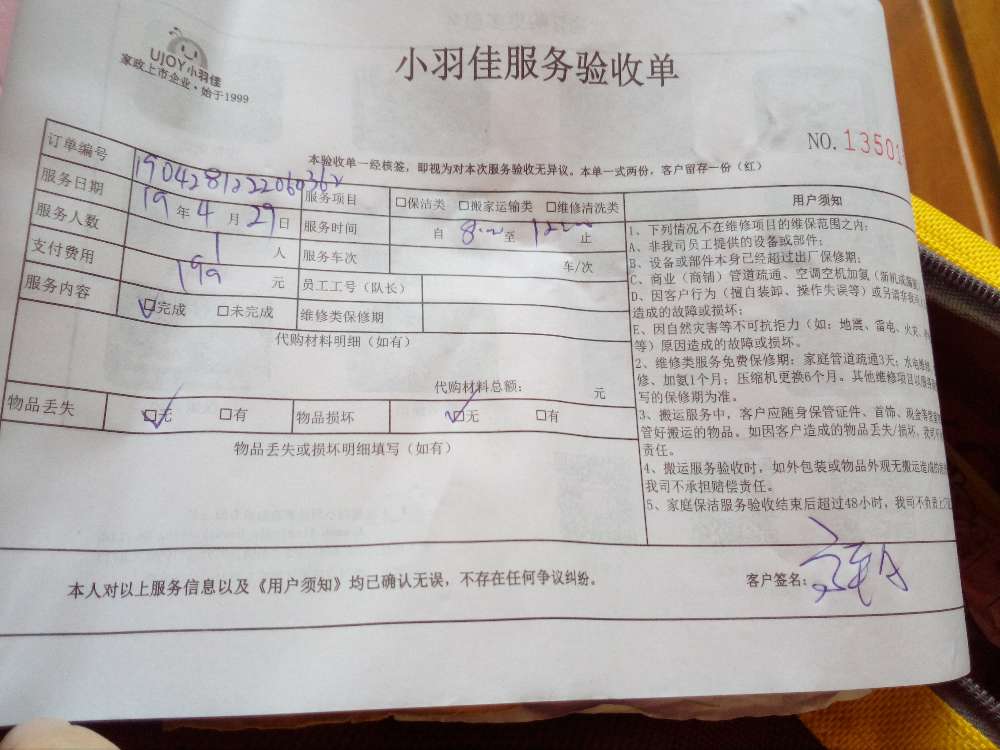 UJOY小羽佳
家政上市企业·始于1999
小羽佳服务验收单
NO. 13501
本验收单一经核签，即视为对本次服务验收无异议。本单一式两份，客户留存一份（红）
订单编号 1904281222060362
服务项目 □保洁类 □搬家运输类 □维修清洗类
服务日期 19 年 4 月 29 日
服务时间 自 8:00 至 12:00 止
服务人数 1 人
服务车次 车/次
支付费用 199 元
员工工号（队长）
服务内容 □完成 □未完成
维修类保修期
代购材料明细（如有）
代购材料总额： 元
物品丢失 □无 □有 物品损坏 □无 □有
物品丢失或损坏明细填写（如有）
用户须知
1、下列情况不在维修项目的维保范围之内：
A、非我司员工提供的设备或部件；
B、设备或部件本身已经超过出厂保修期；
C、商业（商铺）管道疏通、空调空机加氨（新机或
D、因客户行为（擅自装卸、操作失误等）或另请
造成的故障或损坏；
E、因自然灾害等不可抗拒力（如：地震、雷电、火灾、
等）原因造成的故障或损坏。
2、维修类服务免费保修期：家庭管道疏通3天；水电维
修、加氨1个月；压缩机更换6个月。其他维修项目以
写的保修期为准。
3、搬运服务中，客户应随身保管证件、首饰、现金等
管好搬运的物品。如因客户造成的物品丢失/损坏，我司
责任。
4、搬运服务验收时，如外包装或物品外观无搬运造成
我司不承担赔偿责任。
5、家庭保洁服务验收结束后超过48小时，我司不负责
本人对以上服务信息以及《用户须知》均已确认无误，不存在任何争议纠纷。
客户签名：